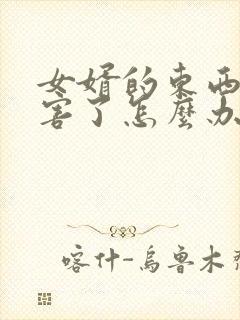 女婿的東西
害了怎麼办
喀什-烏魯木齊